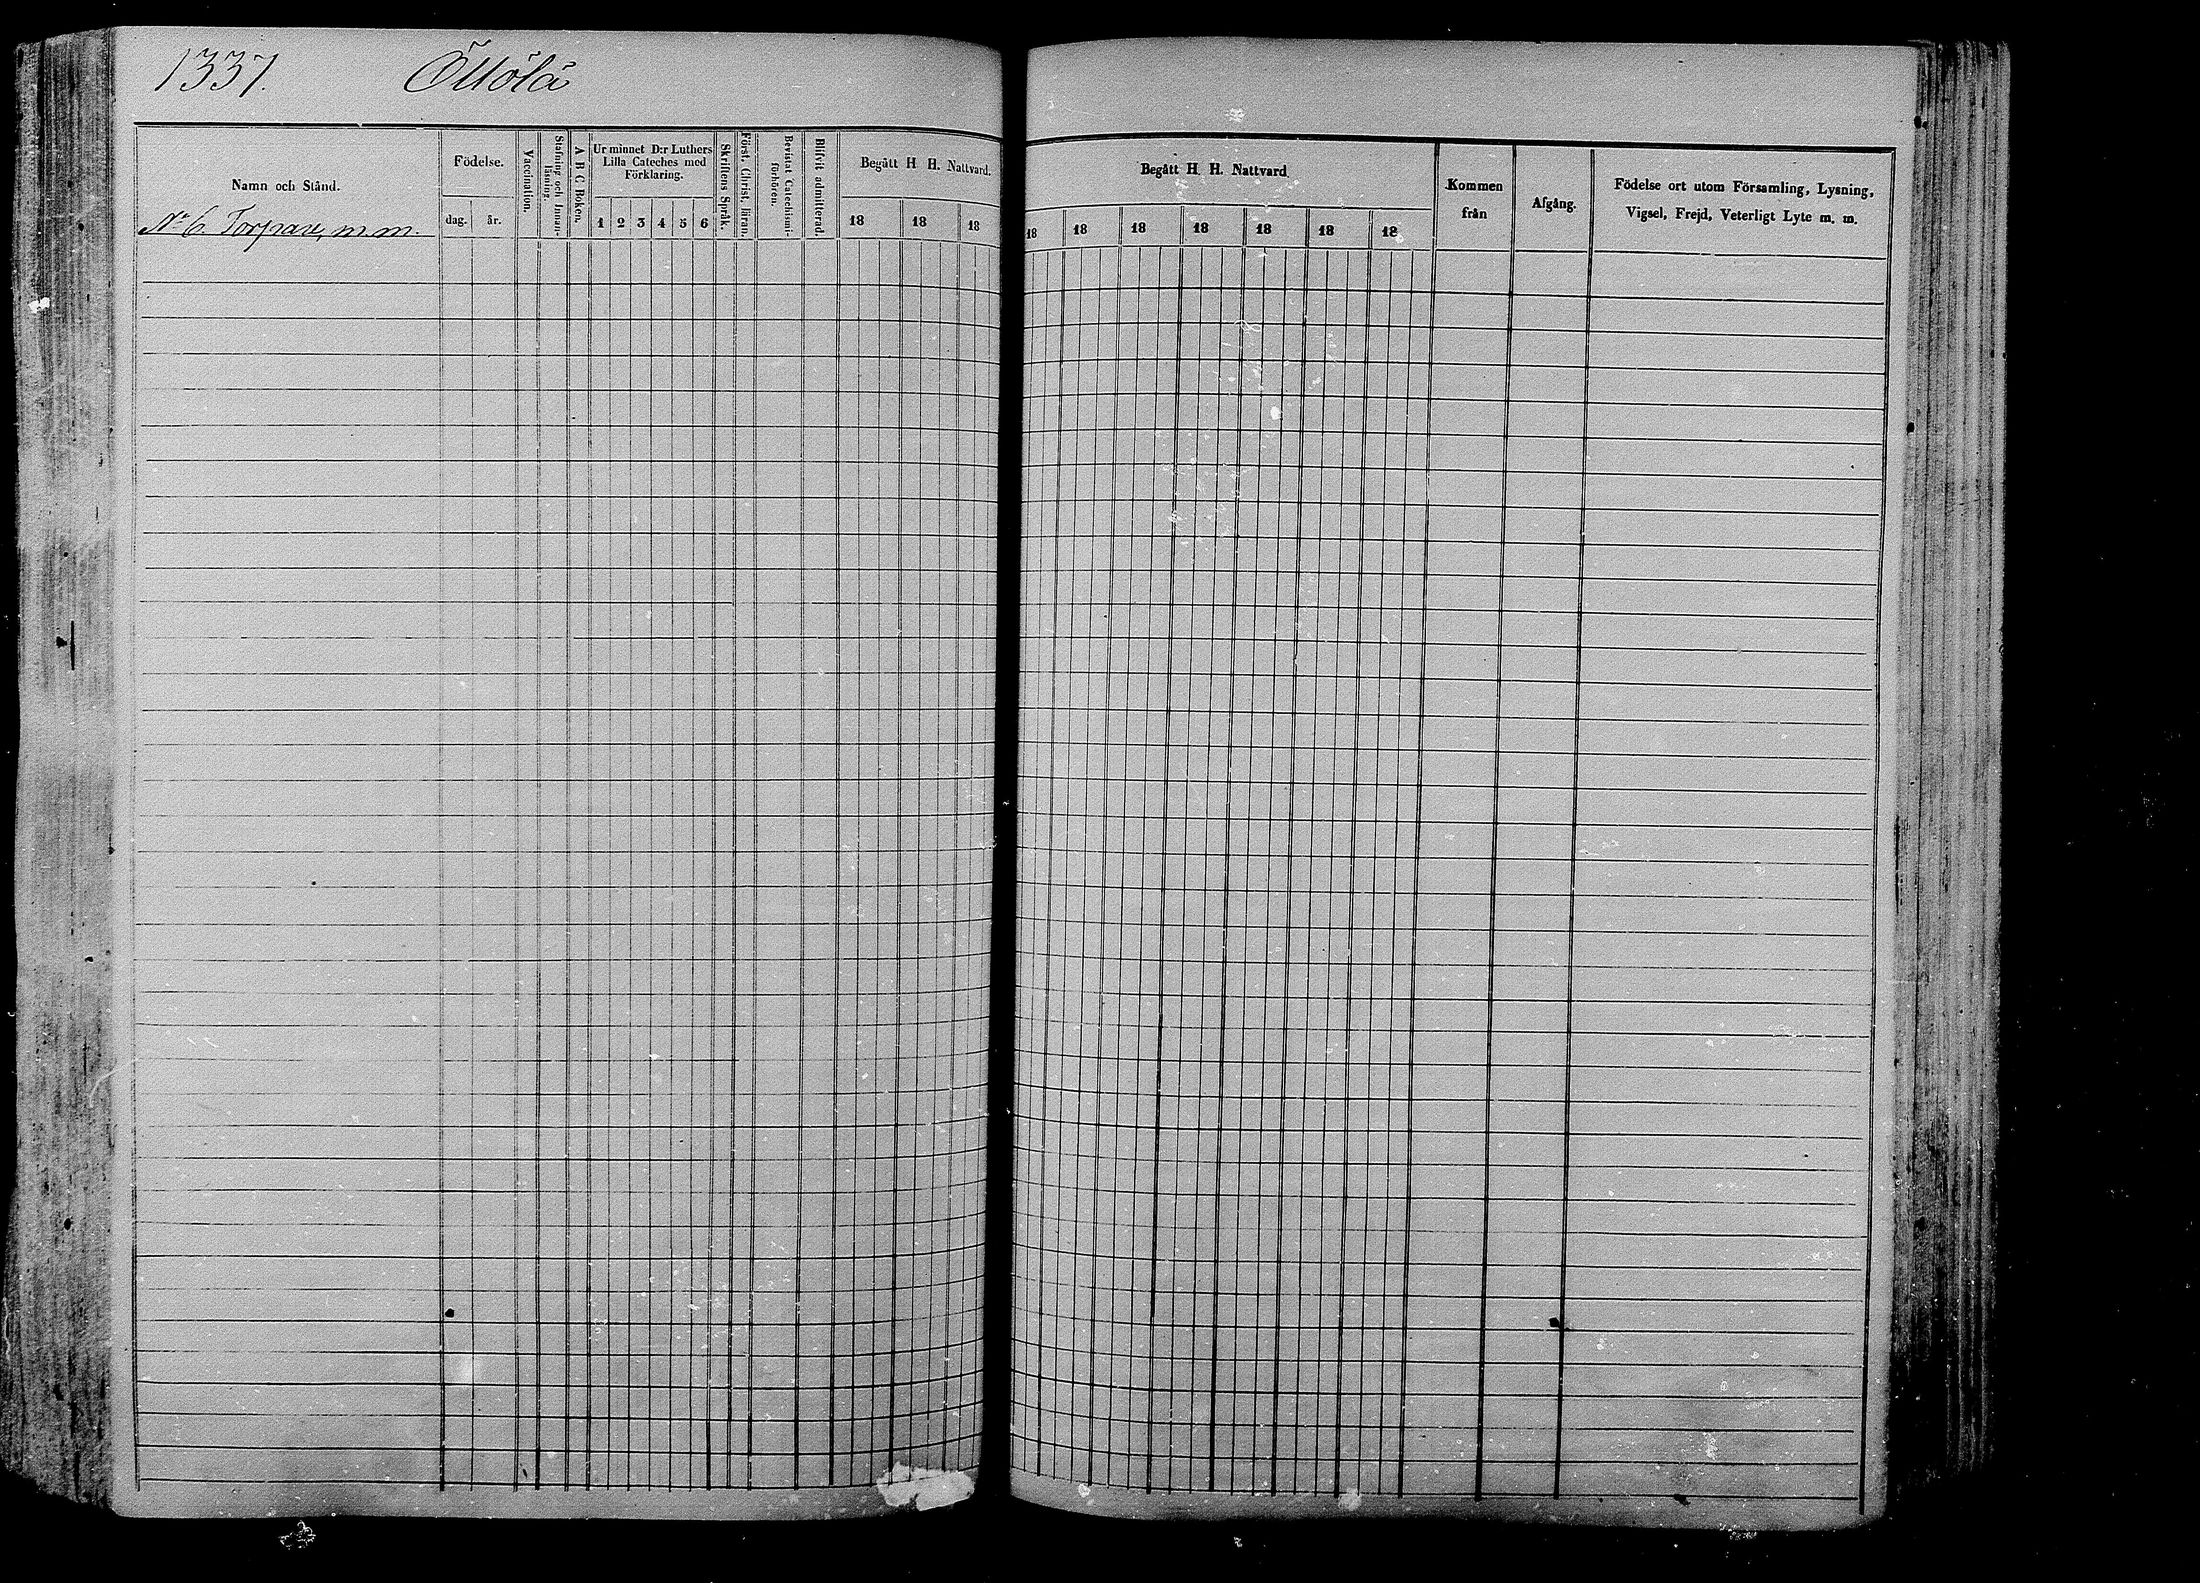 1337. Öllölä
Namn och Stånd.
Nº 6. Torpare, m.m.
Födelse.
dag. år.
Vaccination.
Stafning och Innan-
läsning
A B C Boken.
Ur minnet D:r Luthers
Lilla Cateches med
Förklaring.
1 2 3 4 5 6
Skriftens Språk.
Först. Christ. läran.
Bevistat Catechismi-
förhören.
Blifvit admitterad.
Begått H H. Nattvard.
18 18 18
Begått H. H. Nattvard
18 18 18 18 18 18 18
Kommen
från
Afgång.
Födelse ort utom Församling, Lysning,
Vigsel, Frejd, Veterligt Lyte m. m.